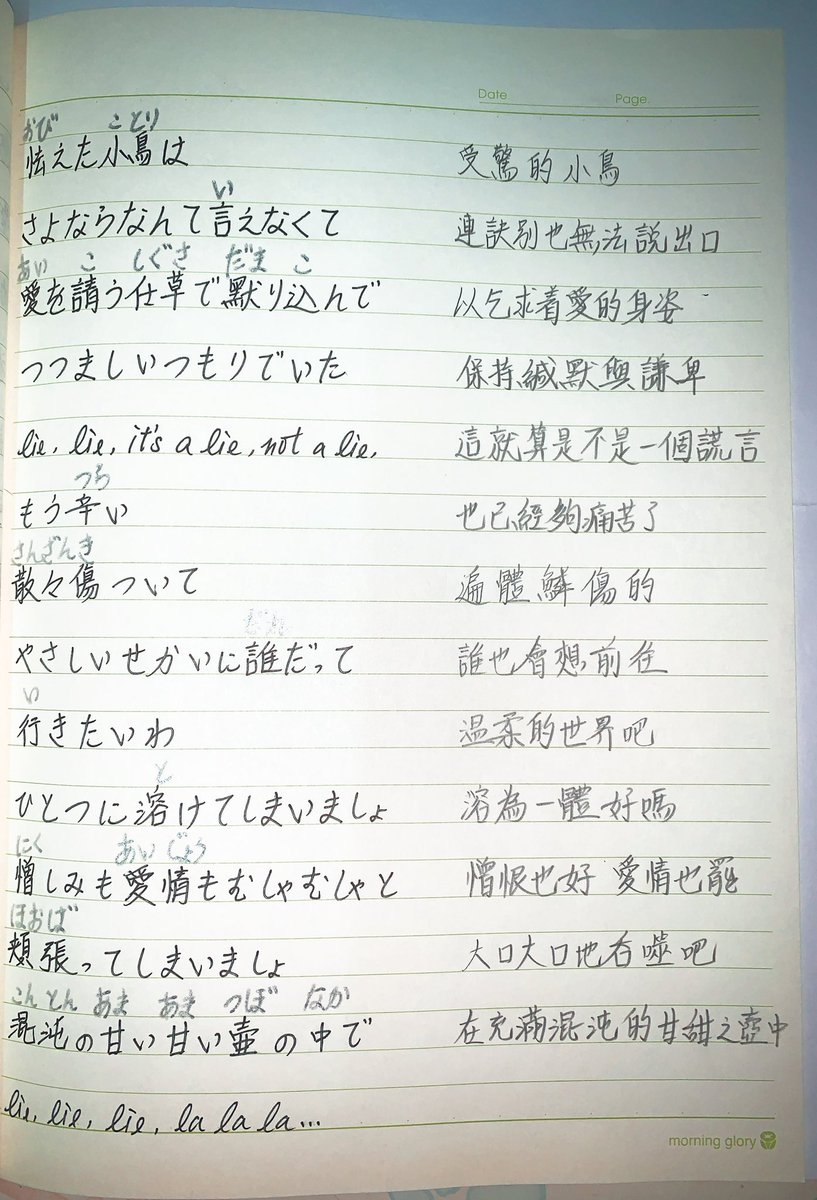 Date Page.
おび ことり
怯えた小鳥は 受驚的小鳥
い
さよならなんて言えなくて 連訣別也無法說出口
あい こ しぐさ だま こ
愛を請う仕草で黙り込んで 以乞求着愛的身姿
つつましいつもりでいた 保持緘默與謙卑
lie, lie, it's a lie, not a lie, 這就算是不是一個謊言
つら
もう辛い 也已經夠痛苦了
さんざんき
散々傷ついて 遍體鱗傷的
だれ
やさしいせかいに誰だって 誰也會想前往
い
行きたいわ 温柔的世界吧
と
ひとつに溶けてしまいましょ 溶為一體好嗎
にく あいじょう
憎しみも愛情もむしゃむしゃと 憎恨也好 愛情也罷
ほおば
頬張ってしまいましょ 大口大口地吞噬吧
こんとん あま あま つぼ なか
混沌の甘い甘い壷の中で 在充滿混沌的甘甜之壺中
lie, lie, lie, la la la...
morning glory